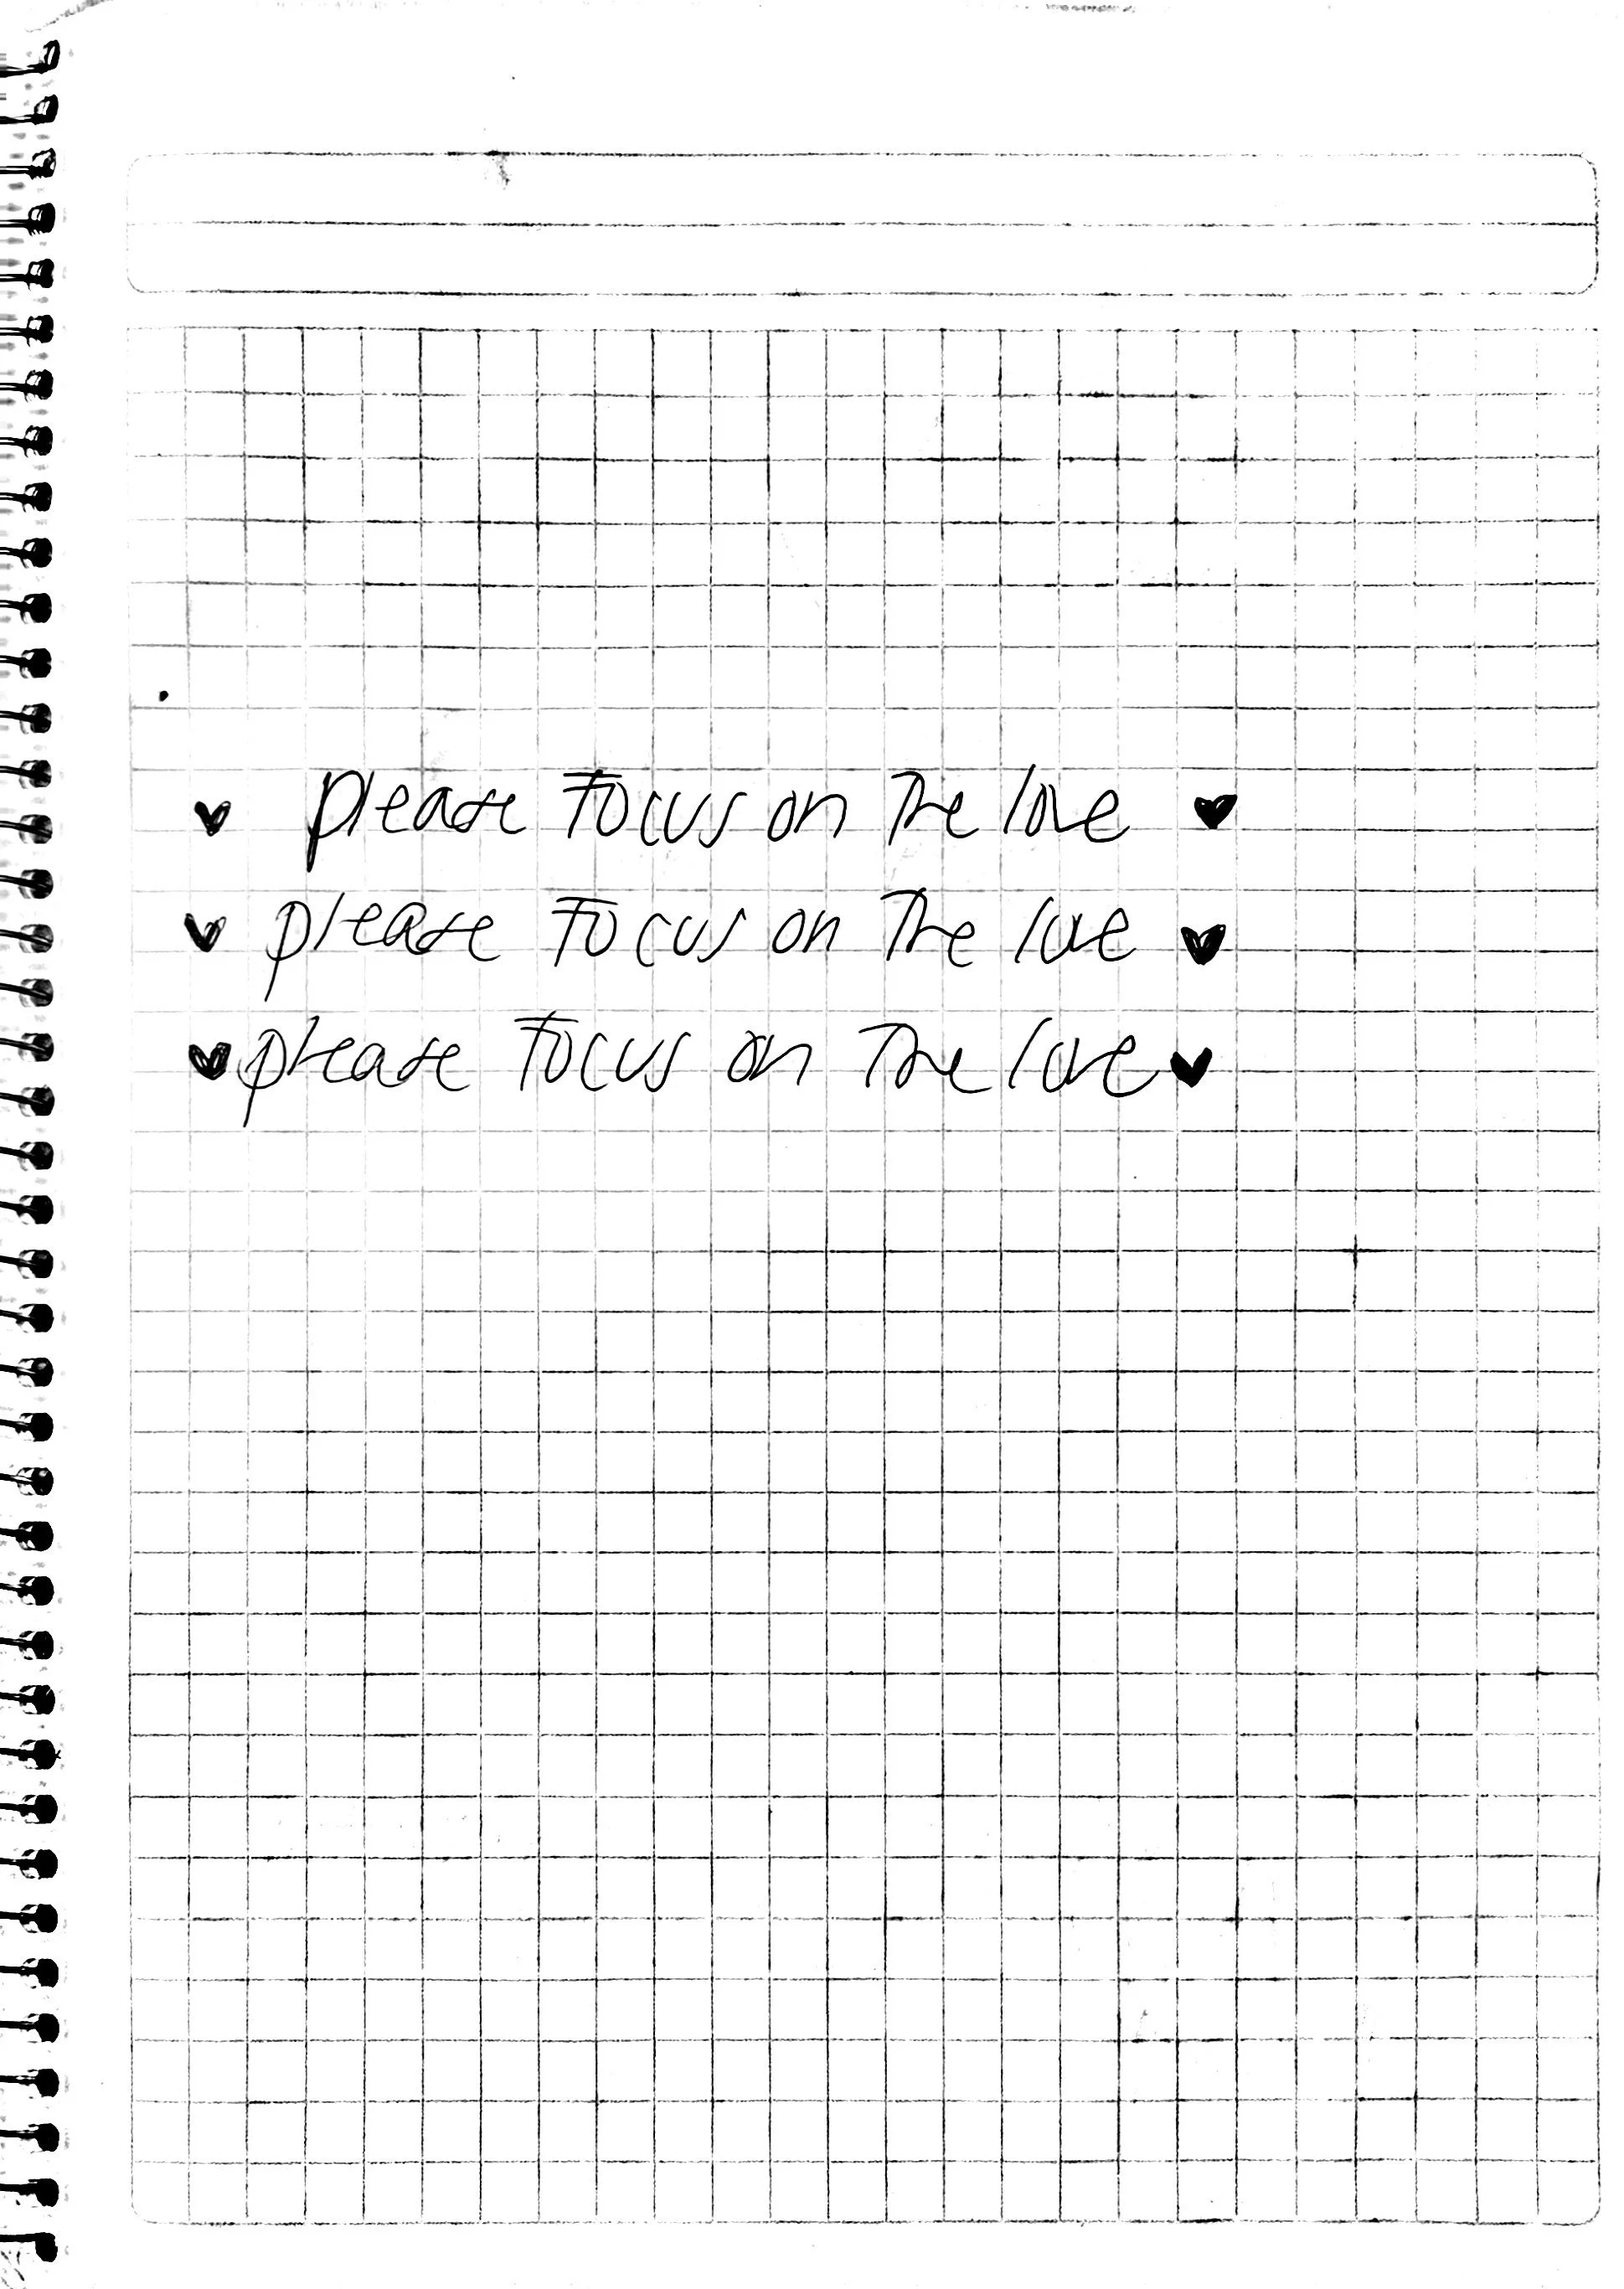 ♥ please Focus on The love ♥
♥ please Focus on The love ♥
♥ please Focus on The love ♥